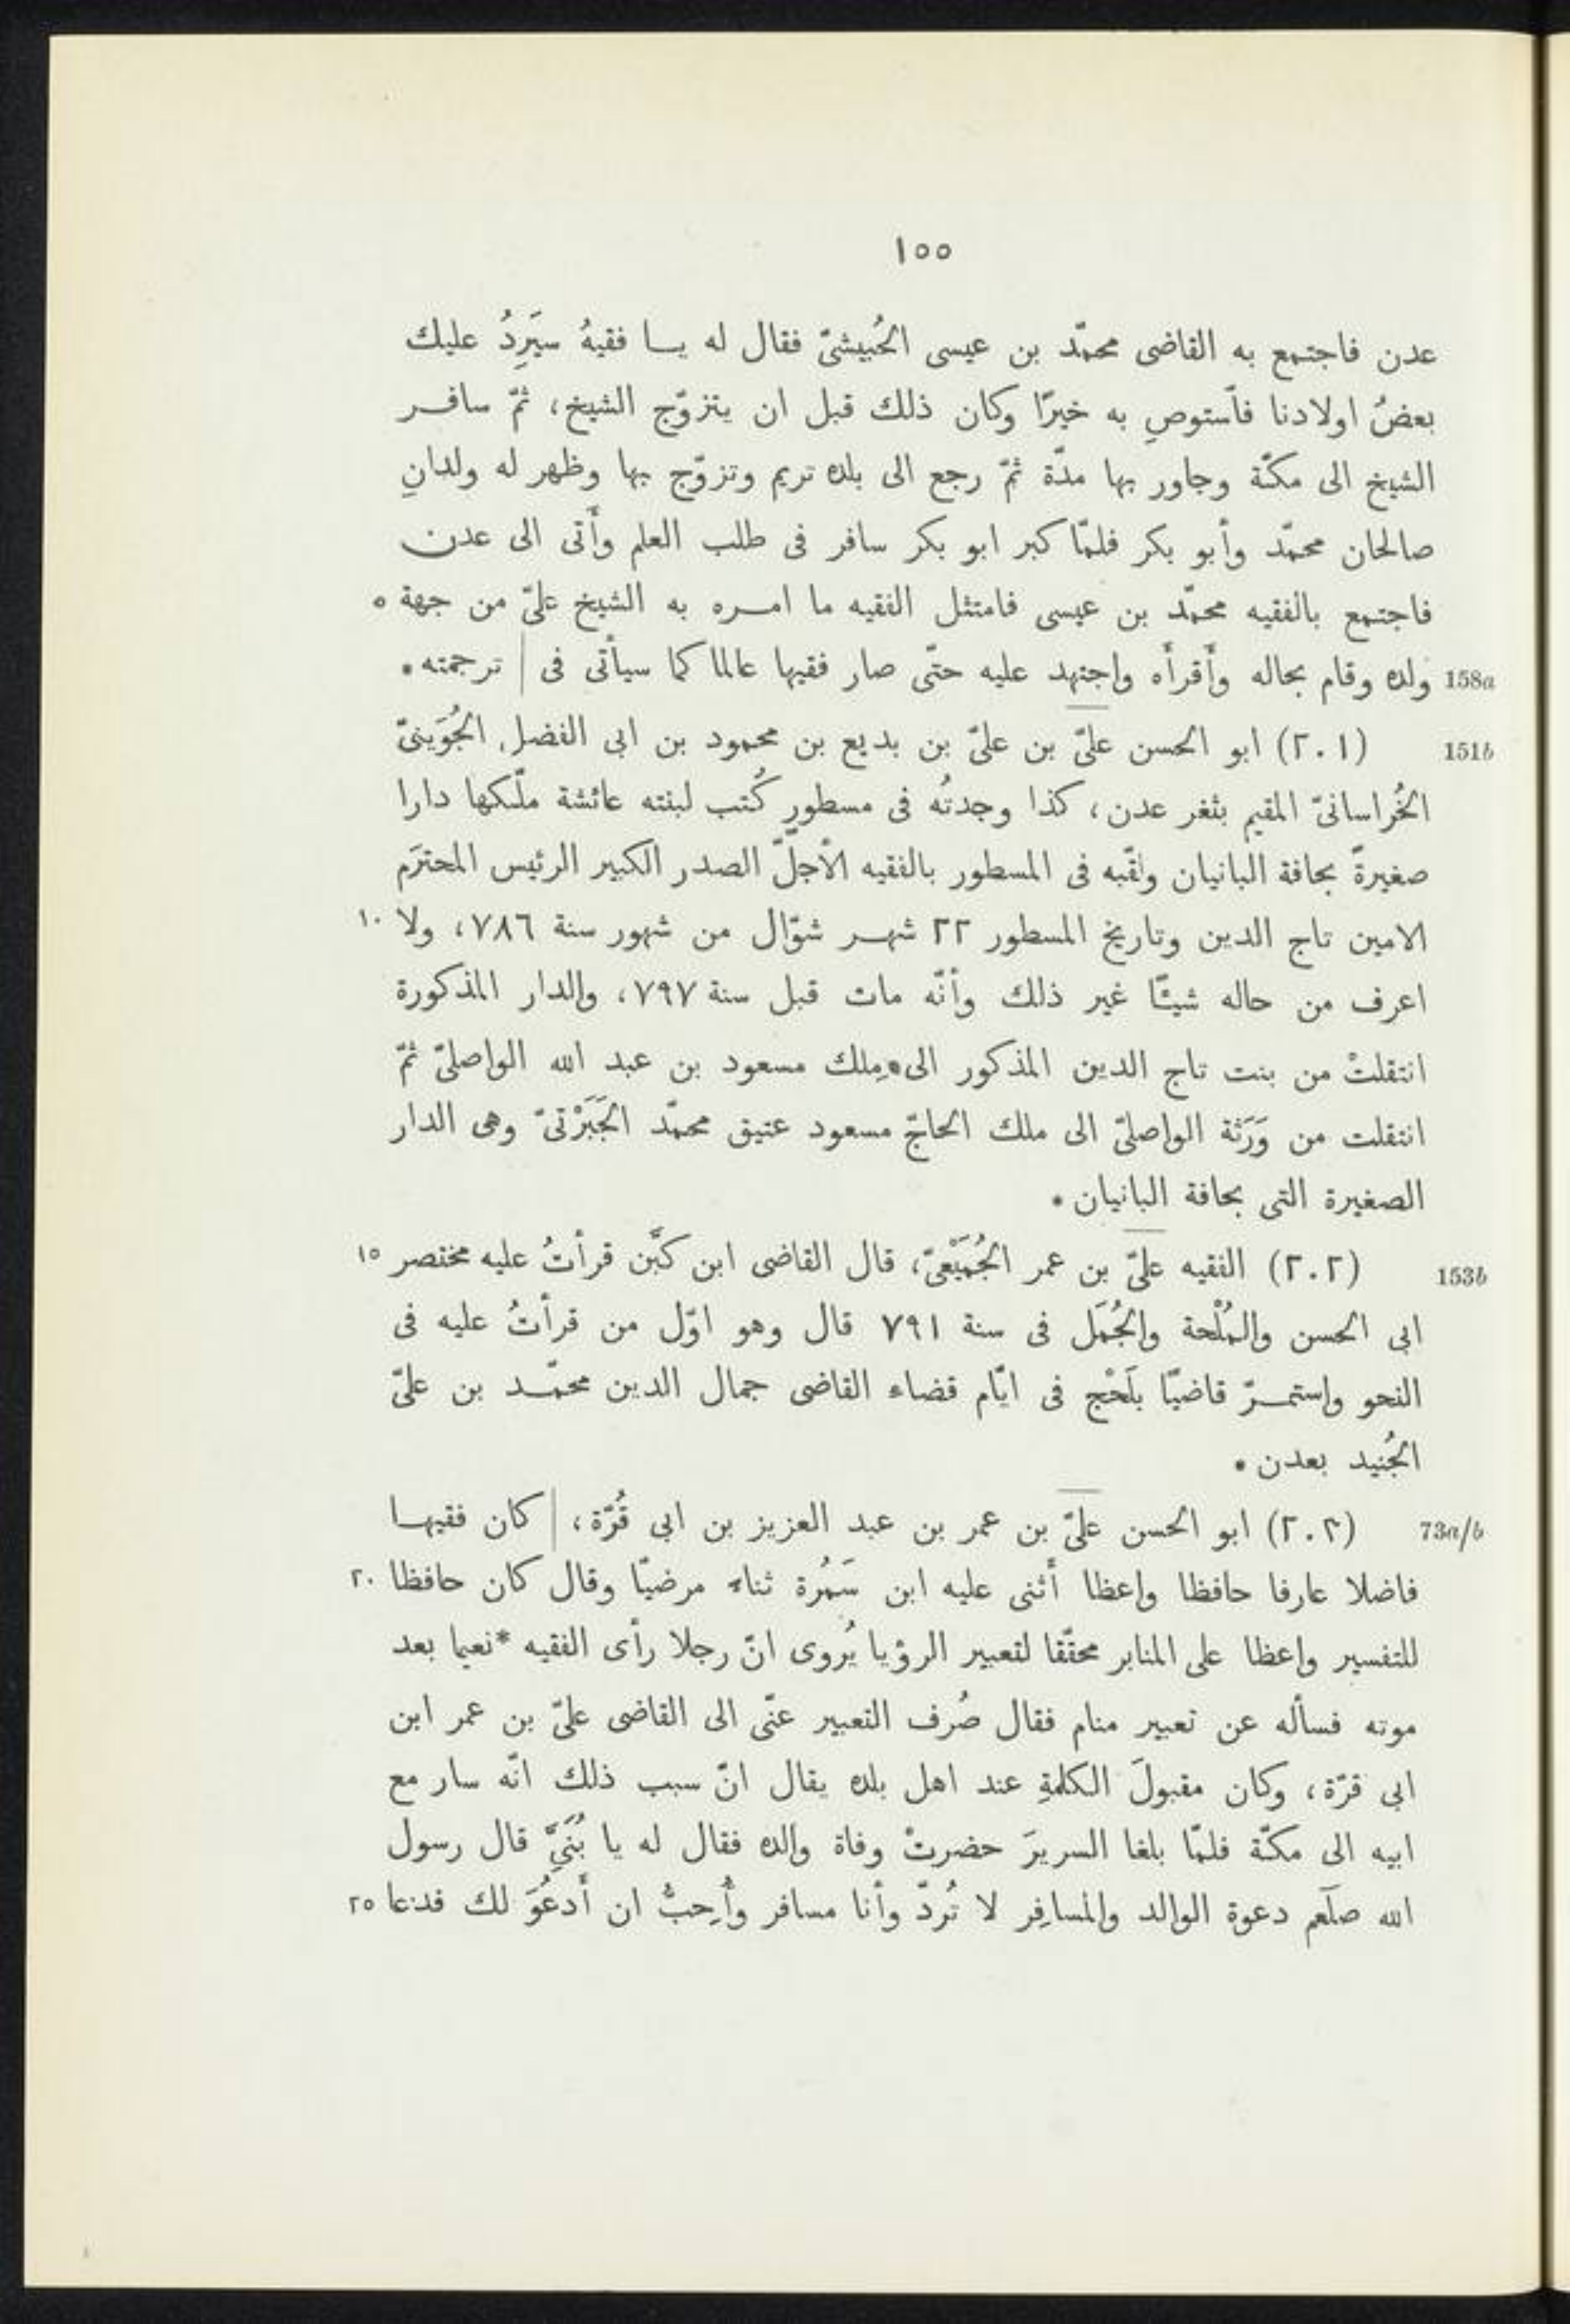 ١٥٥
عدن فاجتمع به القاضى محمّد بن عيسى الحُبيشىّ فقال له يا فقيهُ سيَرِدُ عليك
بعضُ اولادنا فاَستوصِ به خيرًا وكان ذلك قبل ان يتزوّج الشيخ، ثمّ سافر
الشيخ الى مكّة وجاور بها مدّة ثمّ رجع الى بلده تريم وتزوّج بها وظهر له ولدانِ
صالحان محمّد وأبو بكر فلمّا كبر ابو بكر سافر فى طلب العلم وأَتى الى عدن
فاجتمع بالفقيه محمّد بن عيسى فامتثل الفقيه ما امره به الشيخ علىّ من جهة ٥
158a ولده وقام بحاله وأَقرأَه واجتهد عليه حتّى صار فقيها عالما كما سيأتى فى | ترجمته •
151b (٢٠١) ابو الحسن علىّ بن علىّ بن بديع بن محمود بن ابى الفضل الجُوَينىّ
الخُراسانىّ المقيم بثغر عدن، كذا وجدتُه فى مسطور كُتب لبنته عائشة ملّكها دارا
صغيرةً بحافة البانيان ولقّبه فى المسطور بالفقيه الأجلّ الصدر الكبير الرئيس المحترَم
الامين تاج الدين وتاريخ المسطور ٢٢ شهر شوّال من شهور سنة ٧٨٦، ولا ١٠
اعرف من حاله شيئًا غير ذلك وأنّه مات قبل سنة ٧٩٧، والدار المذكورة
انتقلتْ من بنت تاج الدين المذكور الى مِلك مسعود بن عبد الله الواصلىّ ثمّ
انتقلت من وَرَثة الواصلىّ الى ملك الحاجّ مسعود عتيق محمّد الجَبَرْتىّ وهى الدار
الصغيرة التى بحافة البانيان •
153b (٢٠٢) الفقيه علىّ بن عمر الجُمَيْعىّ، قال القاضى ابن كبَّن قرأتُ عليه مختصر ١٥
ابى الحسن والمُلْحة والجُمَل فى سنة ٧٩١ قال وهو اوّل من قرأتُ عليه فى
النحو واستمرّ قاضيًا بلَحْج فى ايّام قضاء القاضى جمال الدين محمّد بن علىّ
الجُنيد بعدن •
73a/b (٢٠٣) ابو الحسن علىّ بن عمر بن عبد العزيز بن ابى قُرّة، | كان فقيها
فاضلا عارفا حافظا واعظا أَثنى عليه ابن سَمُرة ثناءً مرضيّا وقال كان حافظا ٢٠
للتفسير واعظا على المنابر محقّقا لتعبير الرؤيا يُروى انّ رجلا رأى الفقيه *نعيما بعد
موته فسأله عن تعبير منام فقال صُرف التعبير عنّى الى القاضى علىّ بن عمر ابن
ابى قرّة، وكان مقبولَ الكلمةِ عند اهل بلده يقال انّ سبب ذلك انّه سار مع
ابيه الى مكّة فلمّا بلغا السريرَ حضرتْ وفاة والده فقال له يا بُنَىَّ قال رسول
الله صلَعم دعوة الوالد والمسافِر لا تُردّ وأنا مسافر وأُحِبُّ ان أَدعُوَ لك فدعا ٢٥